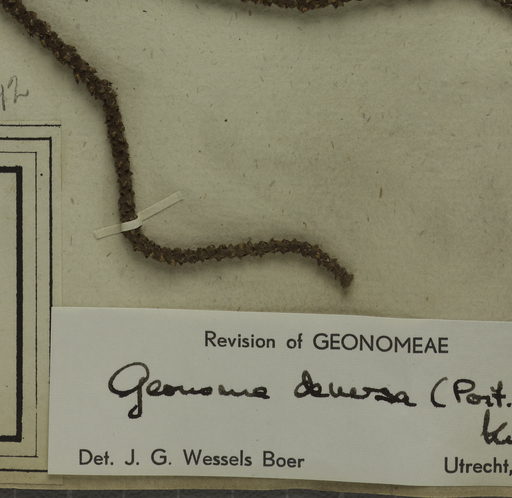 42
Revision of GEONOMEAE
Geonoma deversa (Poit.
Ku
Det. J. G. Wessels Boer
Utrecht,